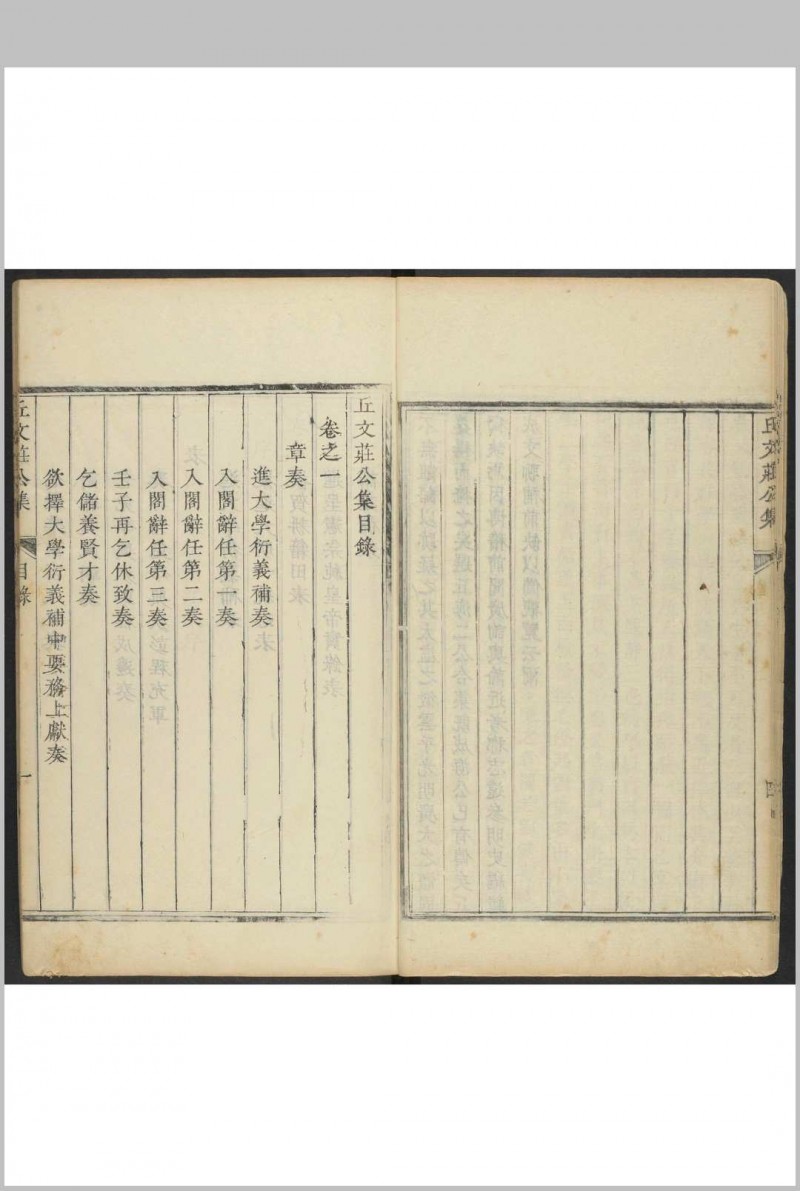 丘文莊公集
四
丘文莊公集目錄
卷之一
章奏
進大學衍義補奏
入閣辭任第一奏
入閣辭任第二奏
入閣辭任第三奏
壬子再乞休致奏
乞儲養賢才奏
欲擇大學衍義補中要務上獻奏
丘文莊公集
目錄
一